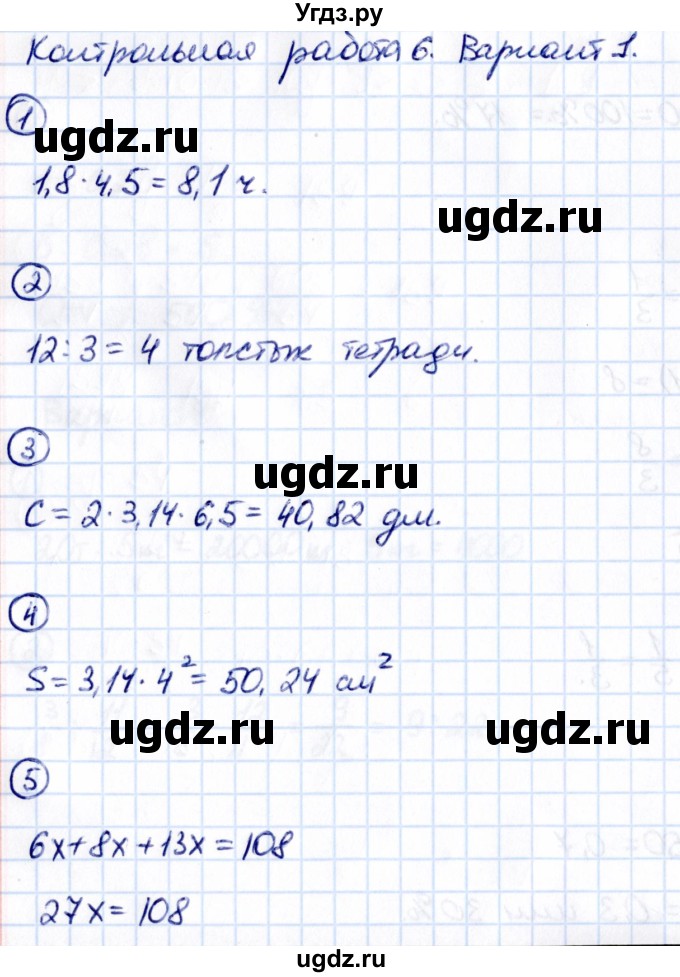 Угдз.ру
Контрольная работа 6. Вариант 1.
1
ugdz.ru
1,8 · 4,5 = 8,1 ч.
ugdz.ru
2
12 : 3 = 4 толстых тетради.
3
ugdz.ru
C = 2 · 3,14 · 6,5 = 40,82 дм.
4
S = 3,14 · 4² = 50,24 см²
ugdz.ru
ugdz.ru
5
6x + 8x + 13x = 108
27x = 108
ugdz.ru